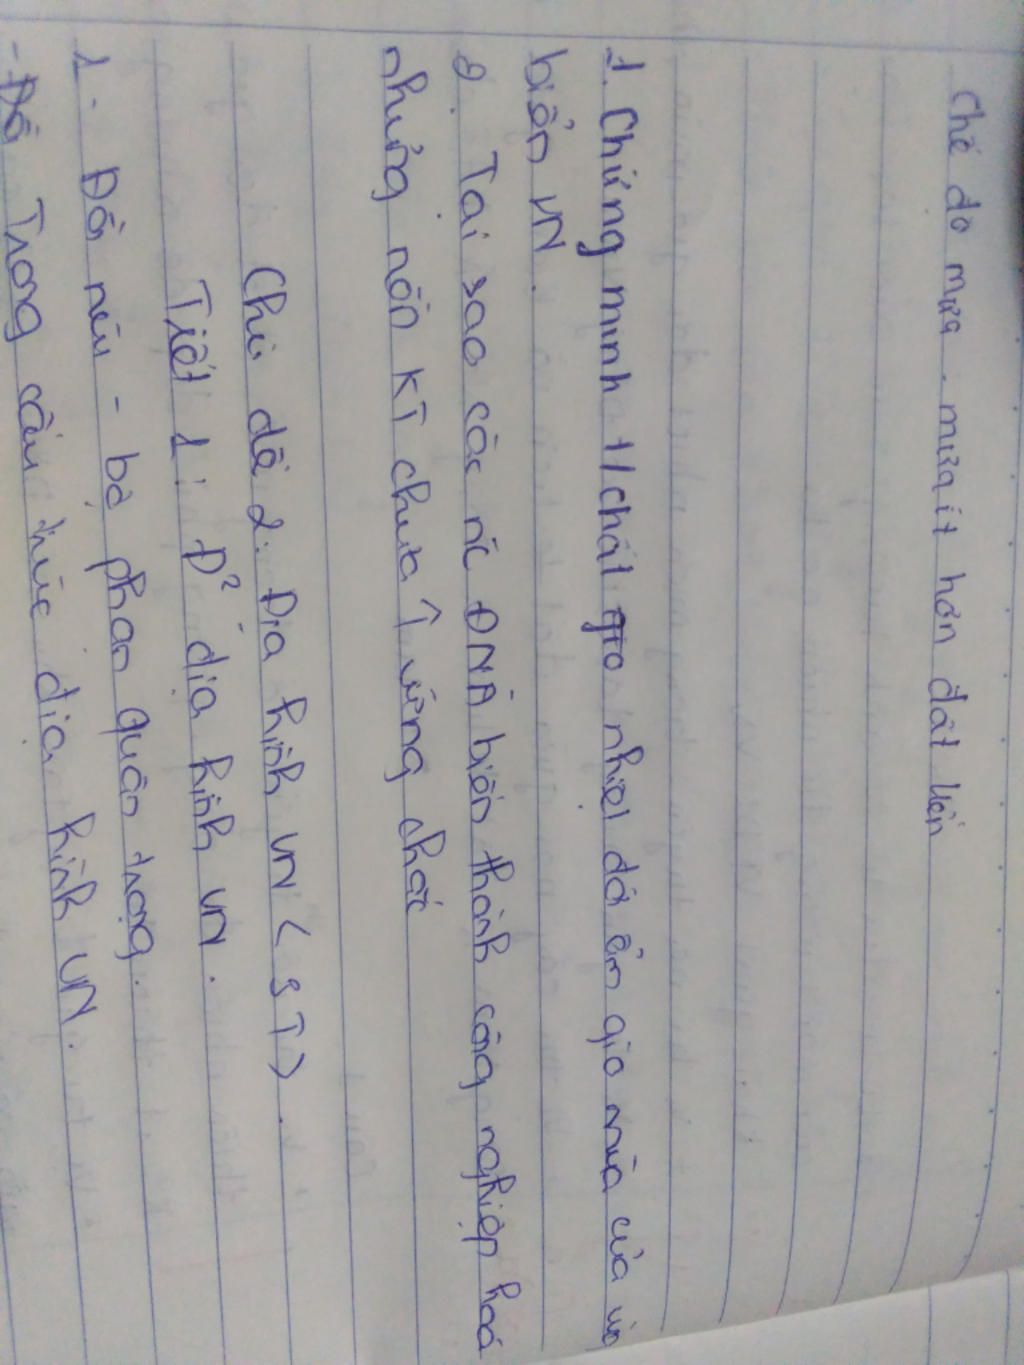 Chế độ mưa. mưa ít hơn đất liền
1. Chứng minh t/chất gió nhiệt đới ẩm gió mùa của vùg
biển VN.
2. Tại sao các nc ĐNÁ biến thành công nghiệp hoá
những nền KT chưa vững chắc
Chủ đề 2: Địa hình VN (ST).
Tiết 1: Đ² địa hình VN.
1. Đồi núi - bộ phận quan trọng.
- Đồi Trong cấu trúc địa hình VN.